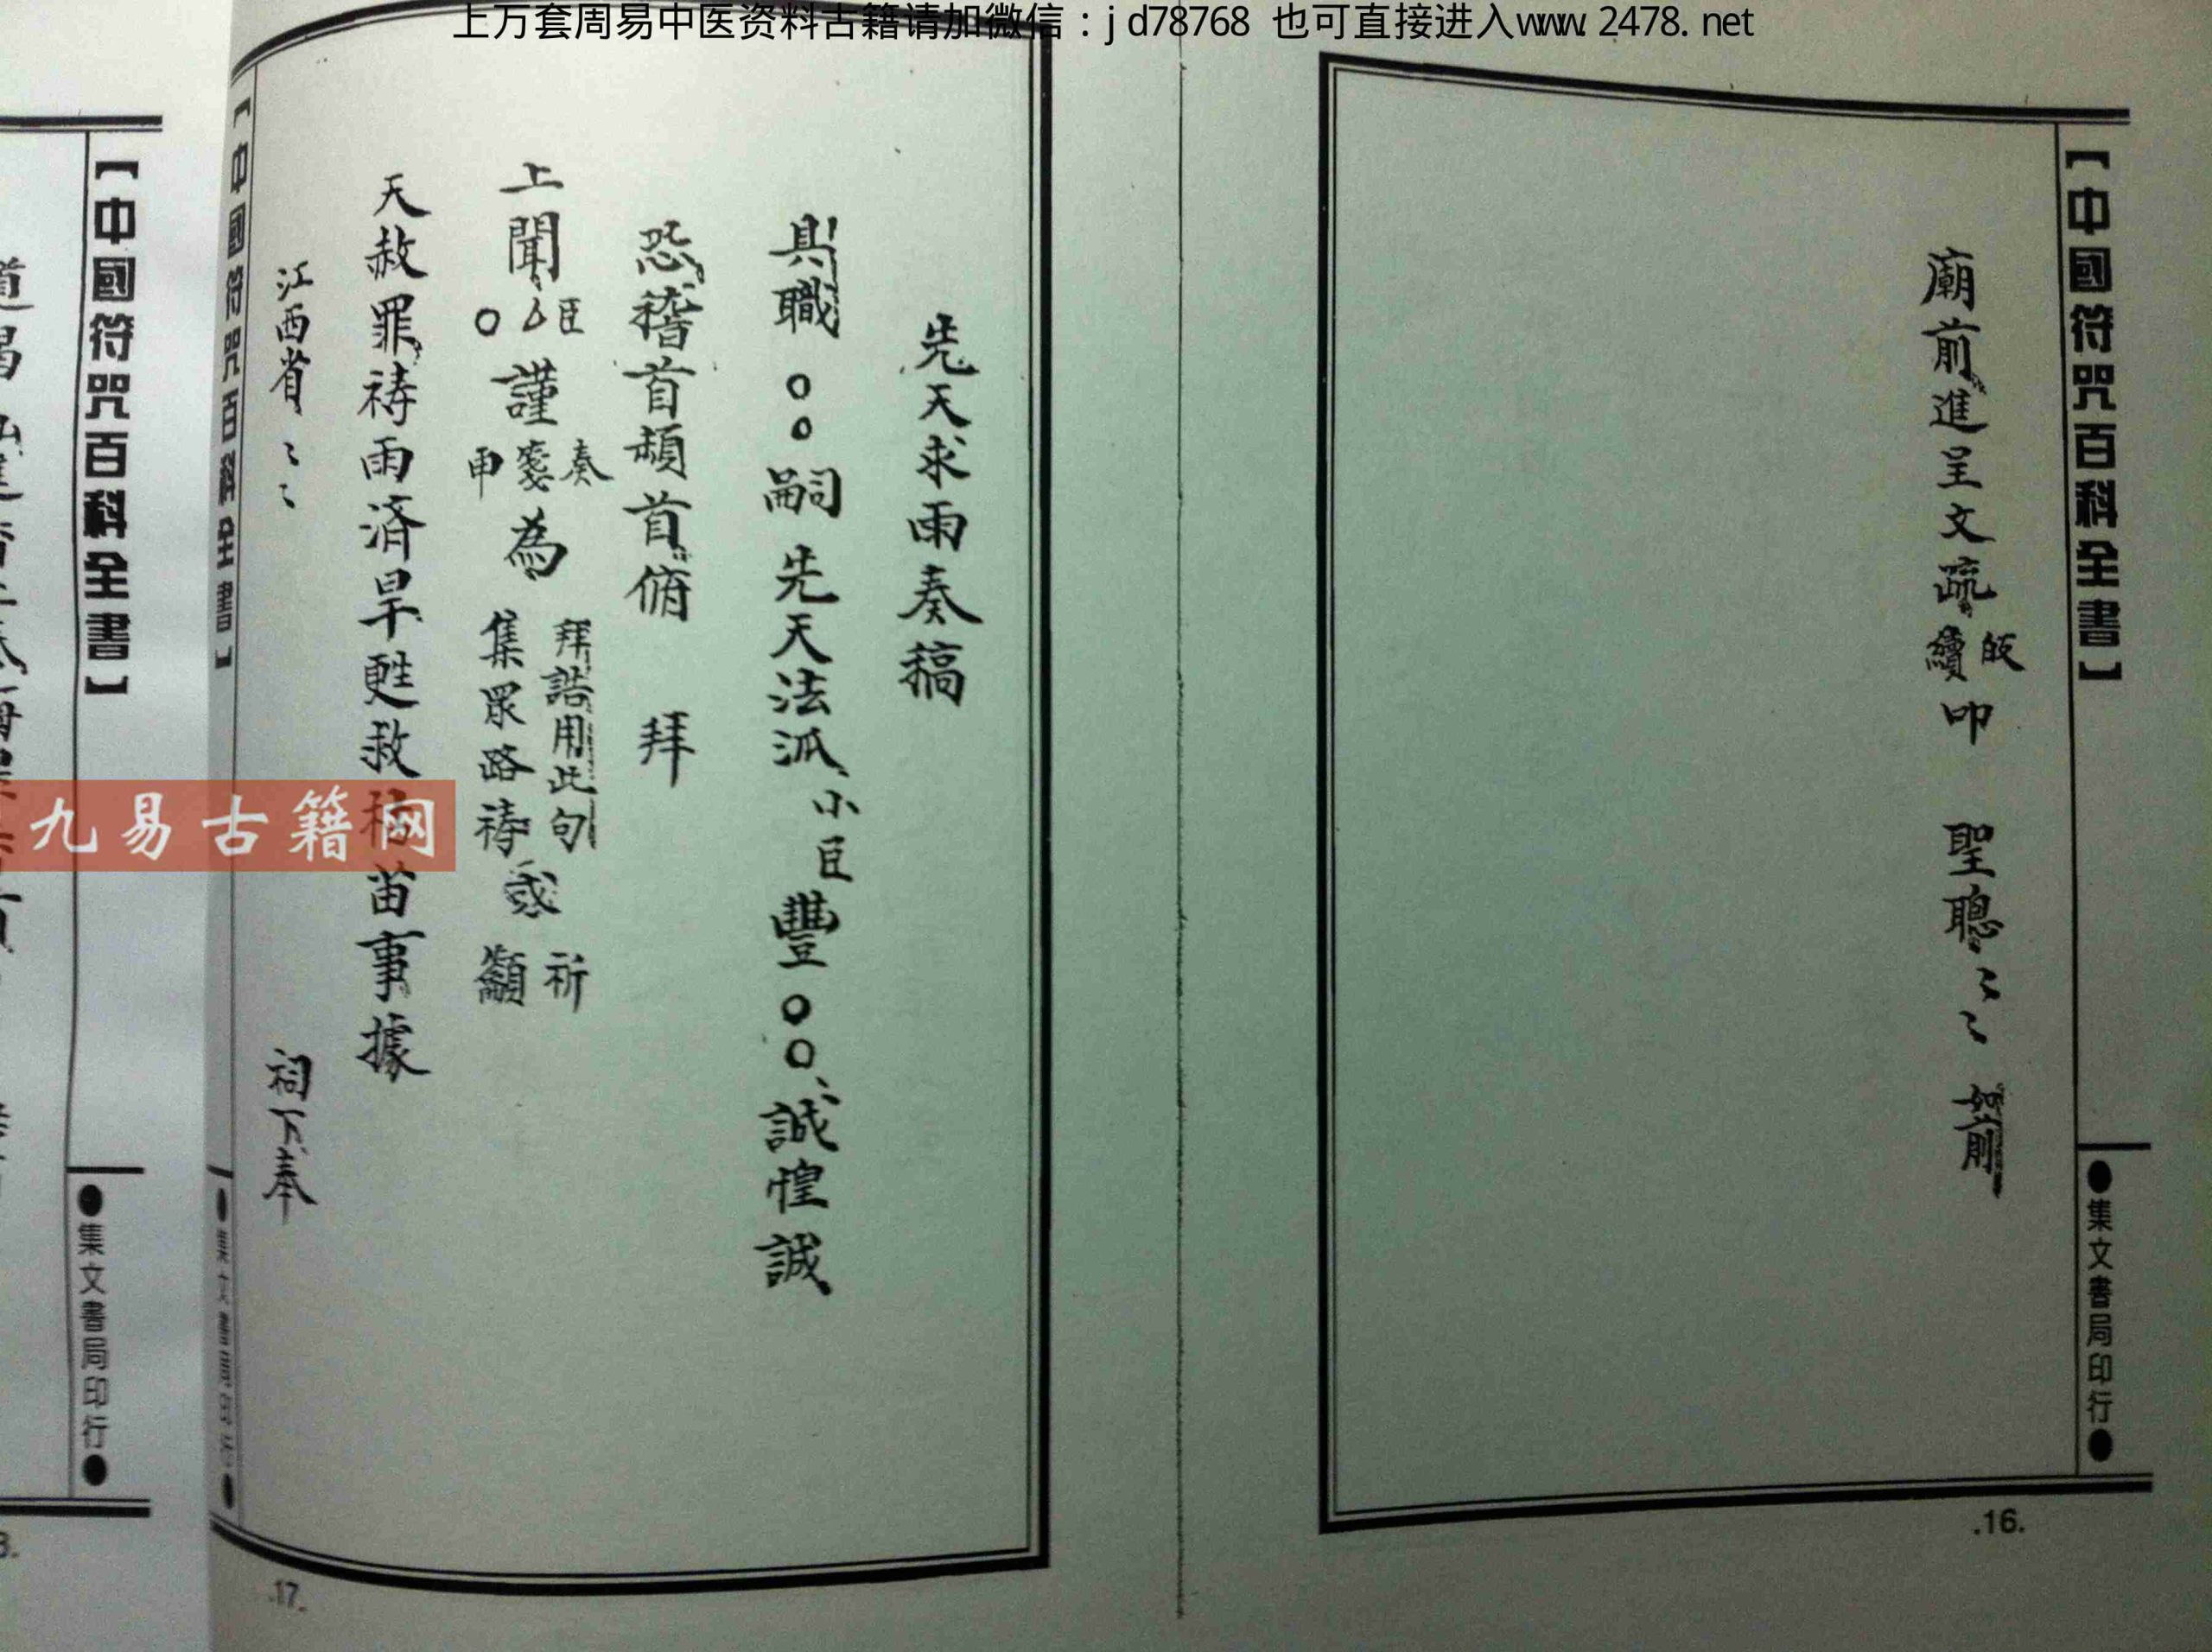 上万套周易中医资料古籍请加微信：jd78768 也可直接进入www.2478.net
【中國符咒百科全書】
●集文書局印行●
廟前進呈文疏
皈
續
叩 聖聰〻〻 如前
.16.
先天求雨奏稿
具職 ○○嗣 先天法派小臣豐○○誠惶誠
恐稽首頓首俯 拜
上聞
臣
厶
○
謹
奏
箋
申
為
拜誥用此句
集眾路禱
或
祈
籲
天赦罪祷雨済旱甦救
苗事據
江西省〻〻 祠下奉
【中國符咒百科全書】
●集文書局印行●
.17.
【中國符咒百科全書】
●集文書局印行●
九易古籍网